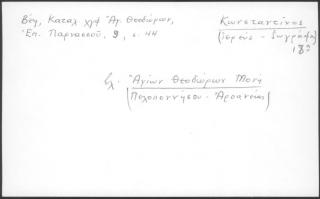 Βέη, Κατάλ χλφ Ἁγ. Θεοδώρων,
Ἐπ. Παρνασσοῦ, 9, σ. 44
Κωνσταντῖνος
(ἱερεύς - ζωγράφος)
18ος
Βλ. Ἁγίων Θεοδώρων Μονή
(Πελοποννήσου - Ἀροανείας)